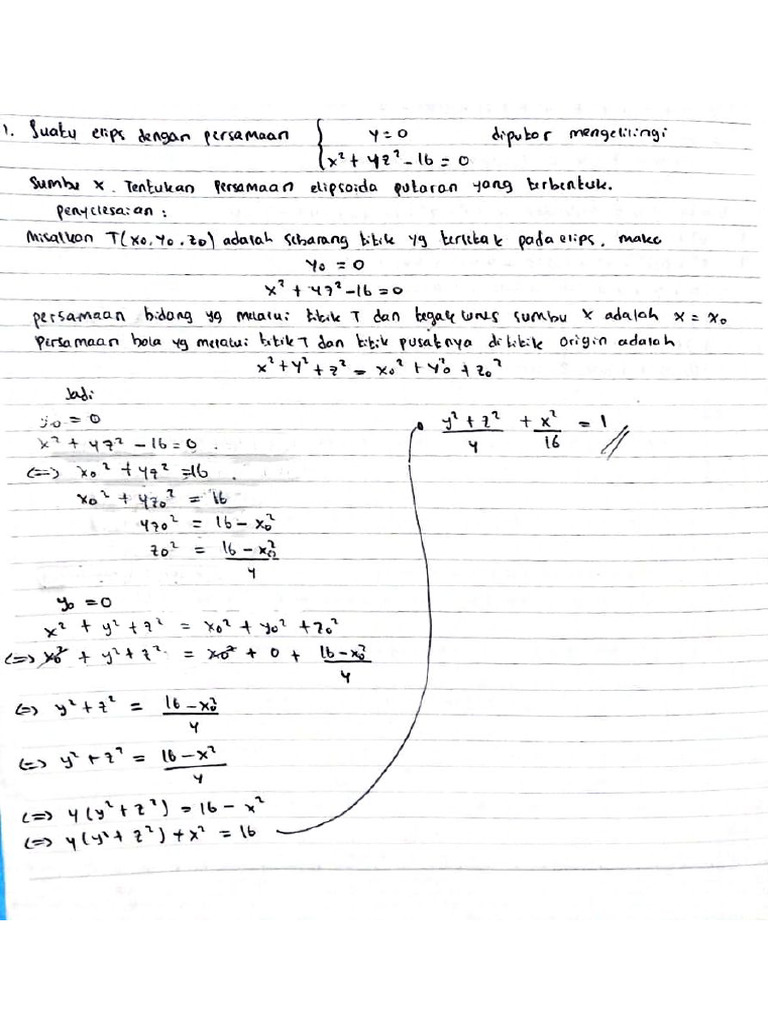 1. Suatu elips dengan persamaan { y = 0 diputar mengelilingi
x² + 4z² - 16 = 0
Sumbu x. Tentukan Persamaan elipsoida putaran yang terbentuk.
Penyelesaian :
Misalkan T(x₀, y₀, z₀) adalah sebarang titik yg terletak pada elips, maka
y₀ = 0
x² + 4z² - 16 = 0
persamaan bidang yg melalui titik T dan tegak lurus sumbu x adalah x = x₀
Persamaan bola yg melalui titik T dan titik pusatnya di titik origin adalah
x² + y² + z² = x₀² + y₀² + z₀²
Jadi
y₀ = 0
x² + 4z² - 16 = 0
<=> x₀² + 4z² = 16
x₀² + 4z₀² = 16
4z₀² = 16 - x₀²
z₀² = (16 - x₀²)/4
y₀ = 0
x² + y² + z² = x₀² + y₀² + z₀²
<=> x₀² + y² + z² = x₀² + 0 + (16 - x₀²)/4
<=> y² + z² = (16 - x₀²)/4
<=> y² + z² = (16 - x²)/4
<=> 4(y² + z²) = 16 - x²
<=> 4(y² + z²) + x² = 16
(y² + z²)/4 + x²/16 = 1 //